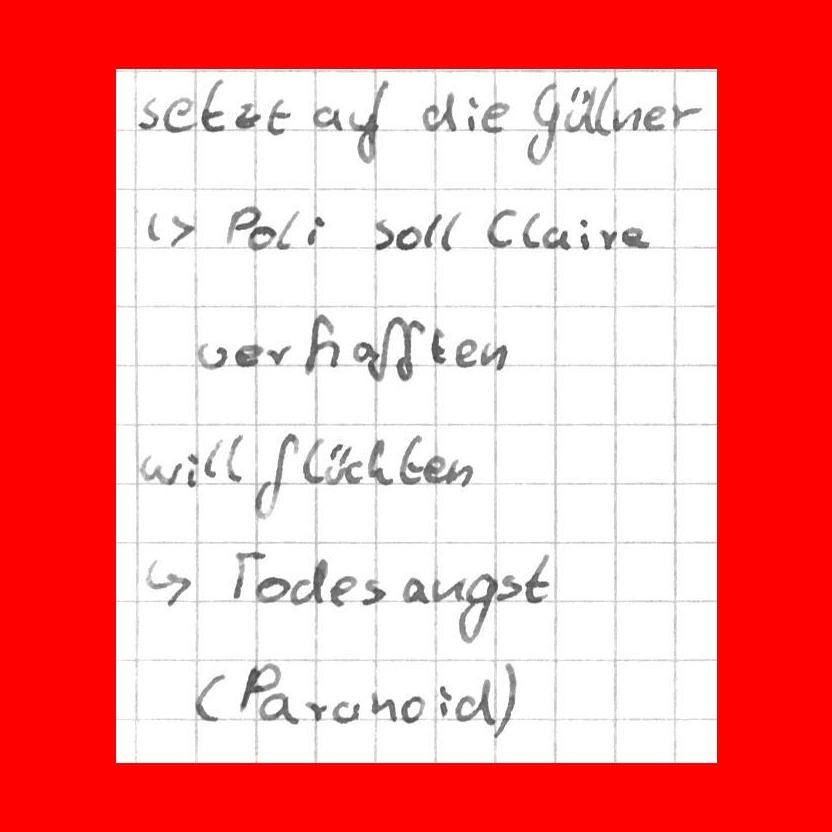 setzt auf die Güllner
↳ Poli soll Claire
verhafften
will flüchten
↳ Todesangst
(Paranoid)